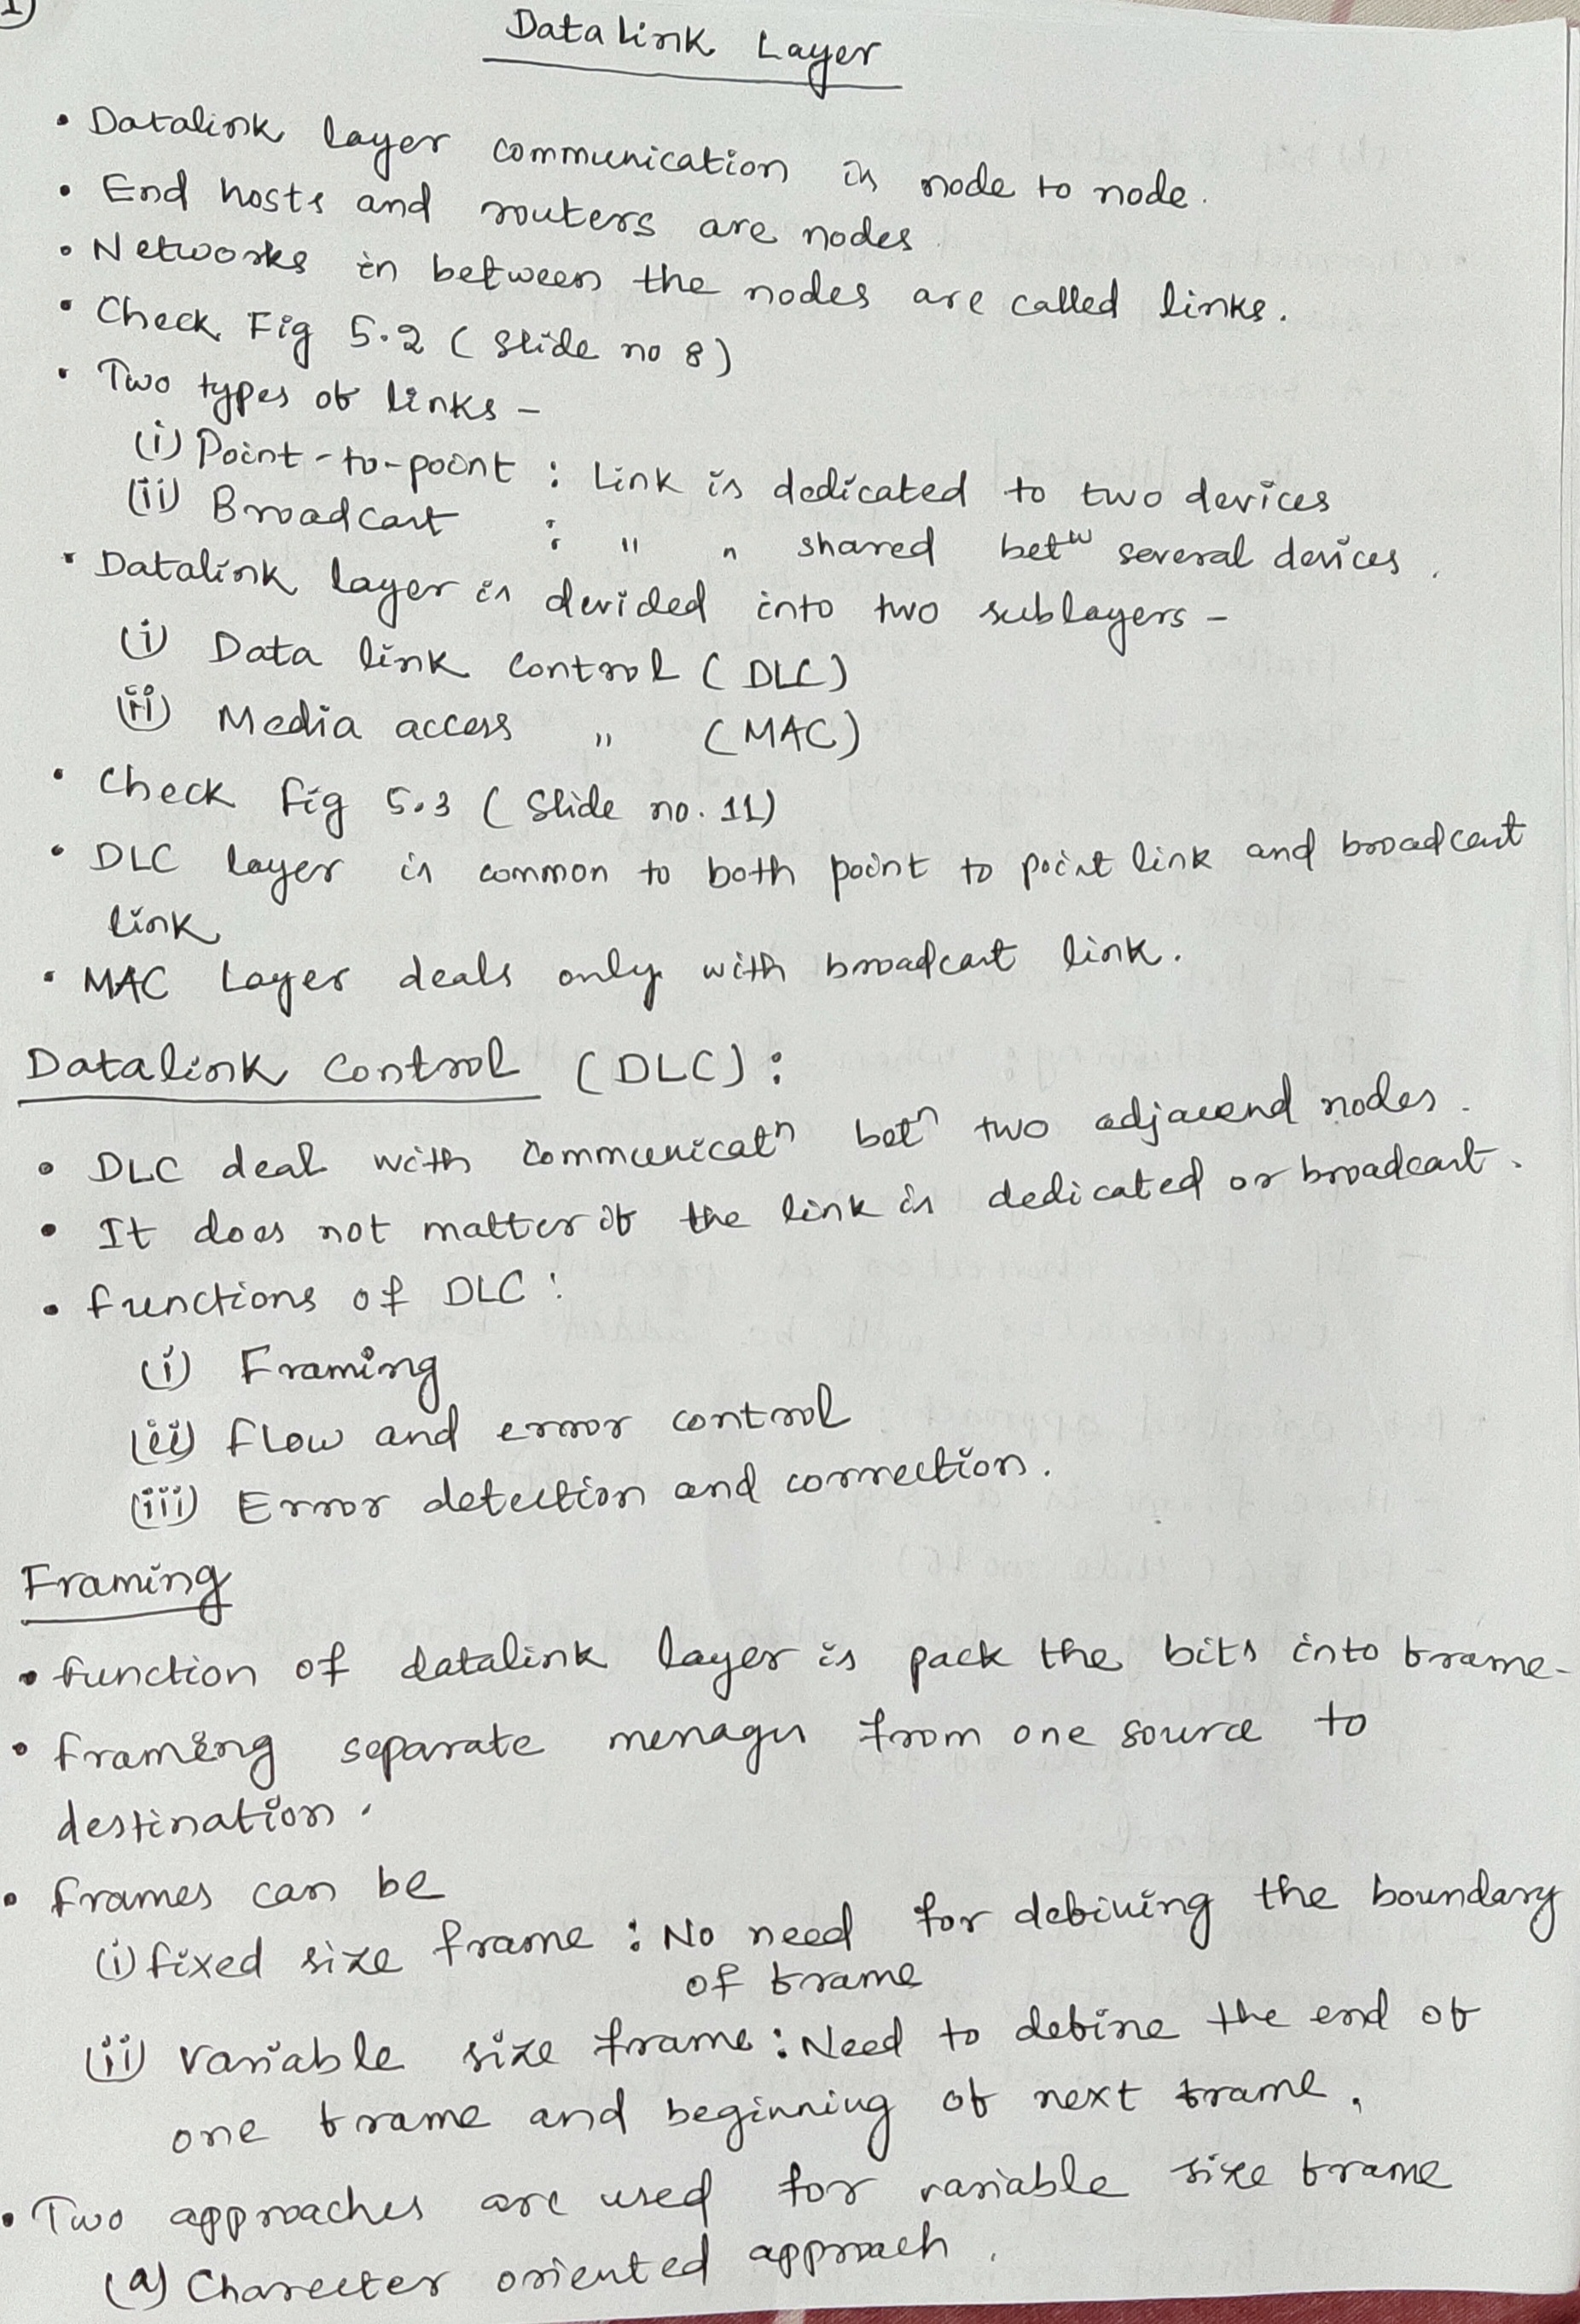 1
Datalink Layer
• Datalink layer communication is node to node.
• End hosts and routers are nodes
• Networks in between the nodes are called links.
• Check Fig 5.2 (Slide no 8)
• Two types of links -
(i) Point-to-point : Link is dedicated to two devices
(ii) Broadcast : " " shared betw several devices.
• Datalink layer is devided into two sublayers -
(i) Data link control (DLC)
(ii) Media access " (MAC)
• Check fig 5.3 (Slide no. 11)
• DLC layer is common to both point to point link and broadcast
link
• MAC Layer deals only with broadcast link.
Datalink control (DLC):
• DLC deal with communicatn betn two adjacend nodes.
• It does not matter if the link is dedicated or broadcast.
• functions of DLC:
(i) Framing
(ii) flow and error control
(iii) Error detection and correction.
Framing
• function of datalink layer is pack the bits into frame-
• framing separate messages from one source to
destination.
• frames can be
(i) fixed size frame : No need for defining the boundary
of frame
(ii) variable size frame : Need to define the end of
one frame and beginning of next frame.
• Two approaches are used for variable size frame
(a) Charecter oriented approach.